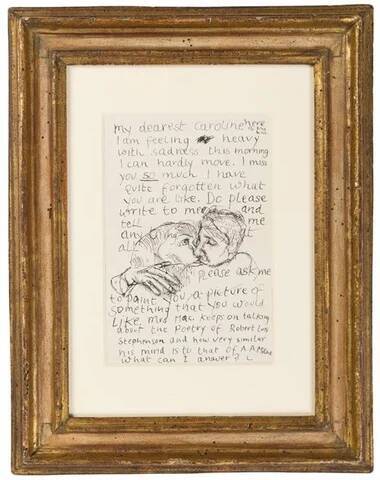 my dearest Caroline here
I am feeling heavy
with sadness this morning
I can hardly move. I miss
you so much I have
quite forgotten what
you are like. Do please
write to me and
tell me
any thing at
all
please ask me
to paint you a picture of
something that you would
like. Mrs Mac keeps on talking
about the Poetry of Robert
Stephenson and how very similar
his mind is to that of A A Milne
what can I answer? L